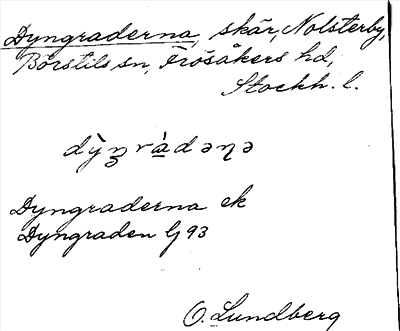 Dyngraderna, skär, Nolsterby,
Börstils sn, Frösåkers hd,
Stockh. l.
dỳ̷ŋràdəɳə
Dyngraderna ek
Dyngraden Gj 93
O. Lundberg